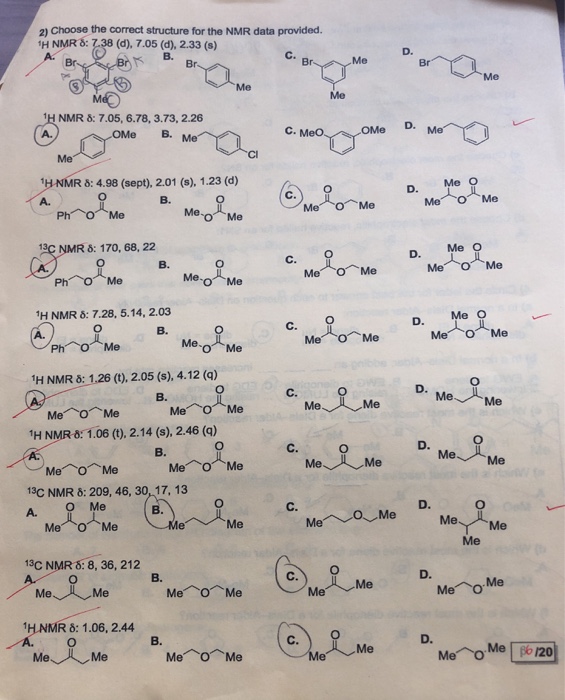 2) Choose the correct structure for the NMR data provided.
¹H NMR δ: 7.38 (d), 7.05 (d), 2.33 (s)
A. B. C. D.
Br Br Me
Br Me
Br Me Me
Br Me
¹H NMR δ: 7.05, 6.78, 3.73, 2.26
A. OMe Me B. Me Cl C. MeO OMe D. Me
¹H NMR δ: 4.98 (sept), 2.01 (s), 1.23 (d)
A. Ph O O Me B. Me O O Me C. Me O O Me D. Me Me O O Me
¹³C NMR δ: 170, 68, 22
A. Ph O O Me B. Me O O Me C. Me O O Me D. Me Me O O Me
¹H NMR δ: 7.28, 5.14, 2.03
A. Ph O O Me B. Me O O Me C. Me O O Me D. Me Me O O Me
¹H NMR δ: 1.26 (t), 2.05 (s), 4.12 (q)
A. Me O Me B. Me O O Me C. Me O Me D. Me O Me
¹H NMR δ: 1.06 (t), 2.14 (s), 2.46 (q)
A. Me O Me B. Me O O Me C. Me O Me D. Me O Me
¹³C NMR δ: 209, 46, 30, 17, 13
A. Me O O Me Me B. Me O Me C. Me O Me D. Me Me O Me
¹³C NMR δ: 8, 36, 212
A. Me O Me B. Me O Me C. Me O Me D. Me O Me
¹H NMR δ: 1.06, 2.44
A. Me O Me B. Me O Me C. Me O Me D. Me O Me
/20